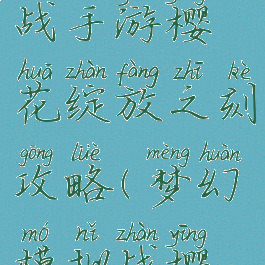 战手游樱
huā zhàn fàng zhī kè
花绽放之刻
gōng lüè mèng huàn
攻略(梦幻
mó nǐ zhàn yīng
模拟战樱